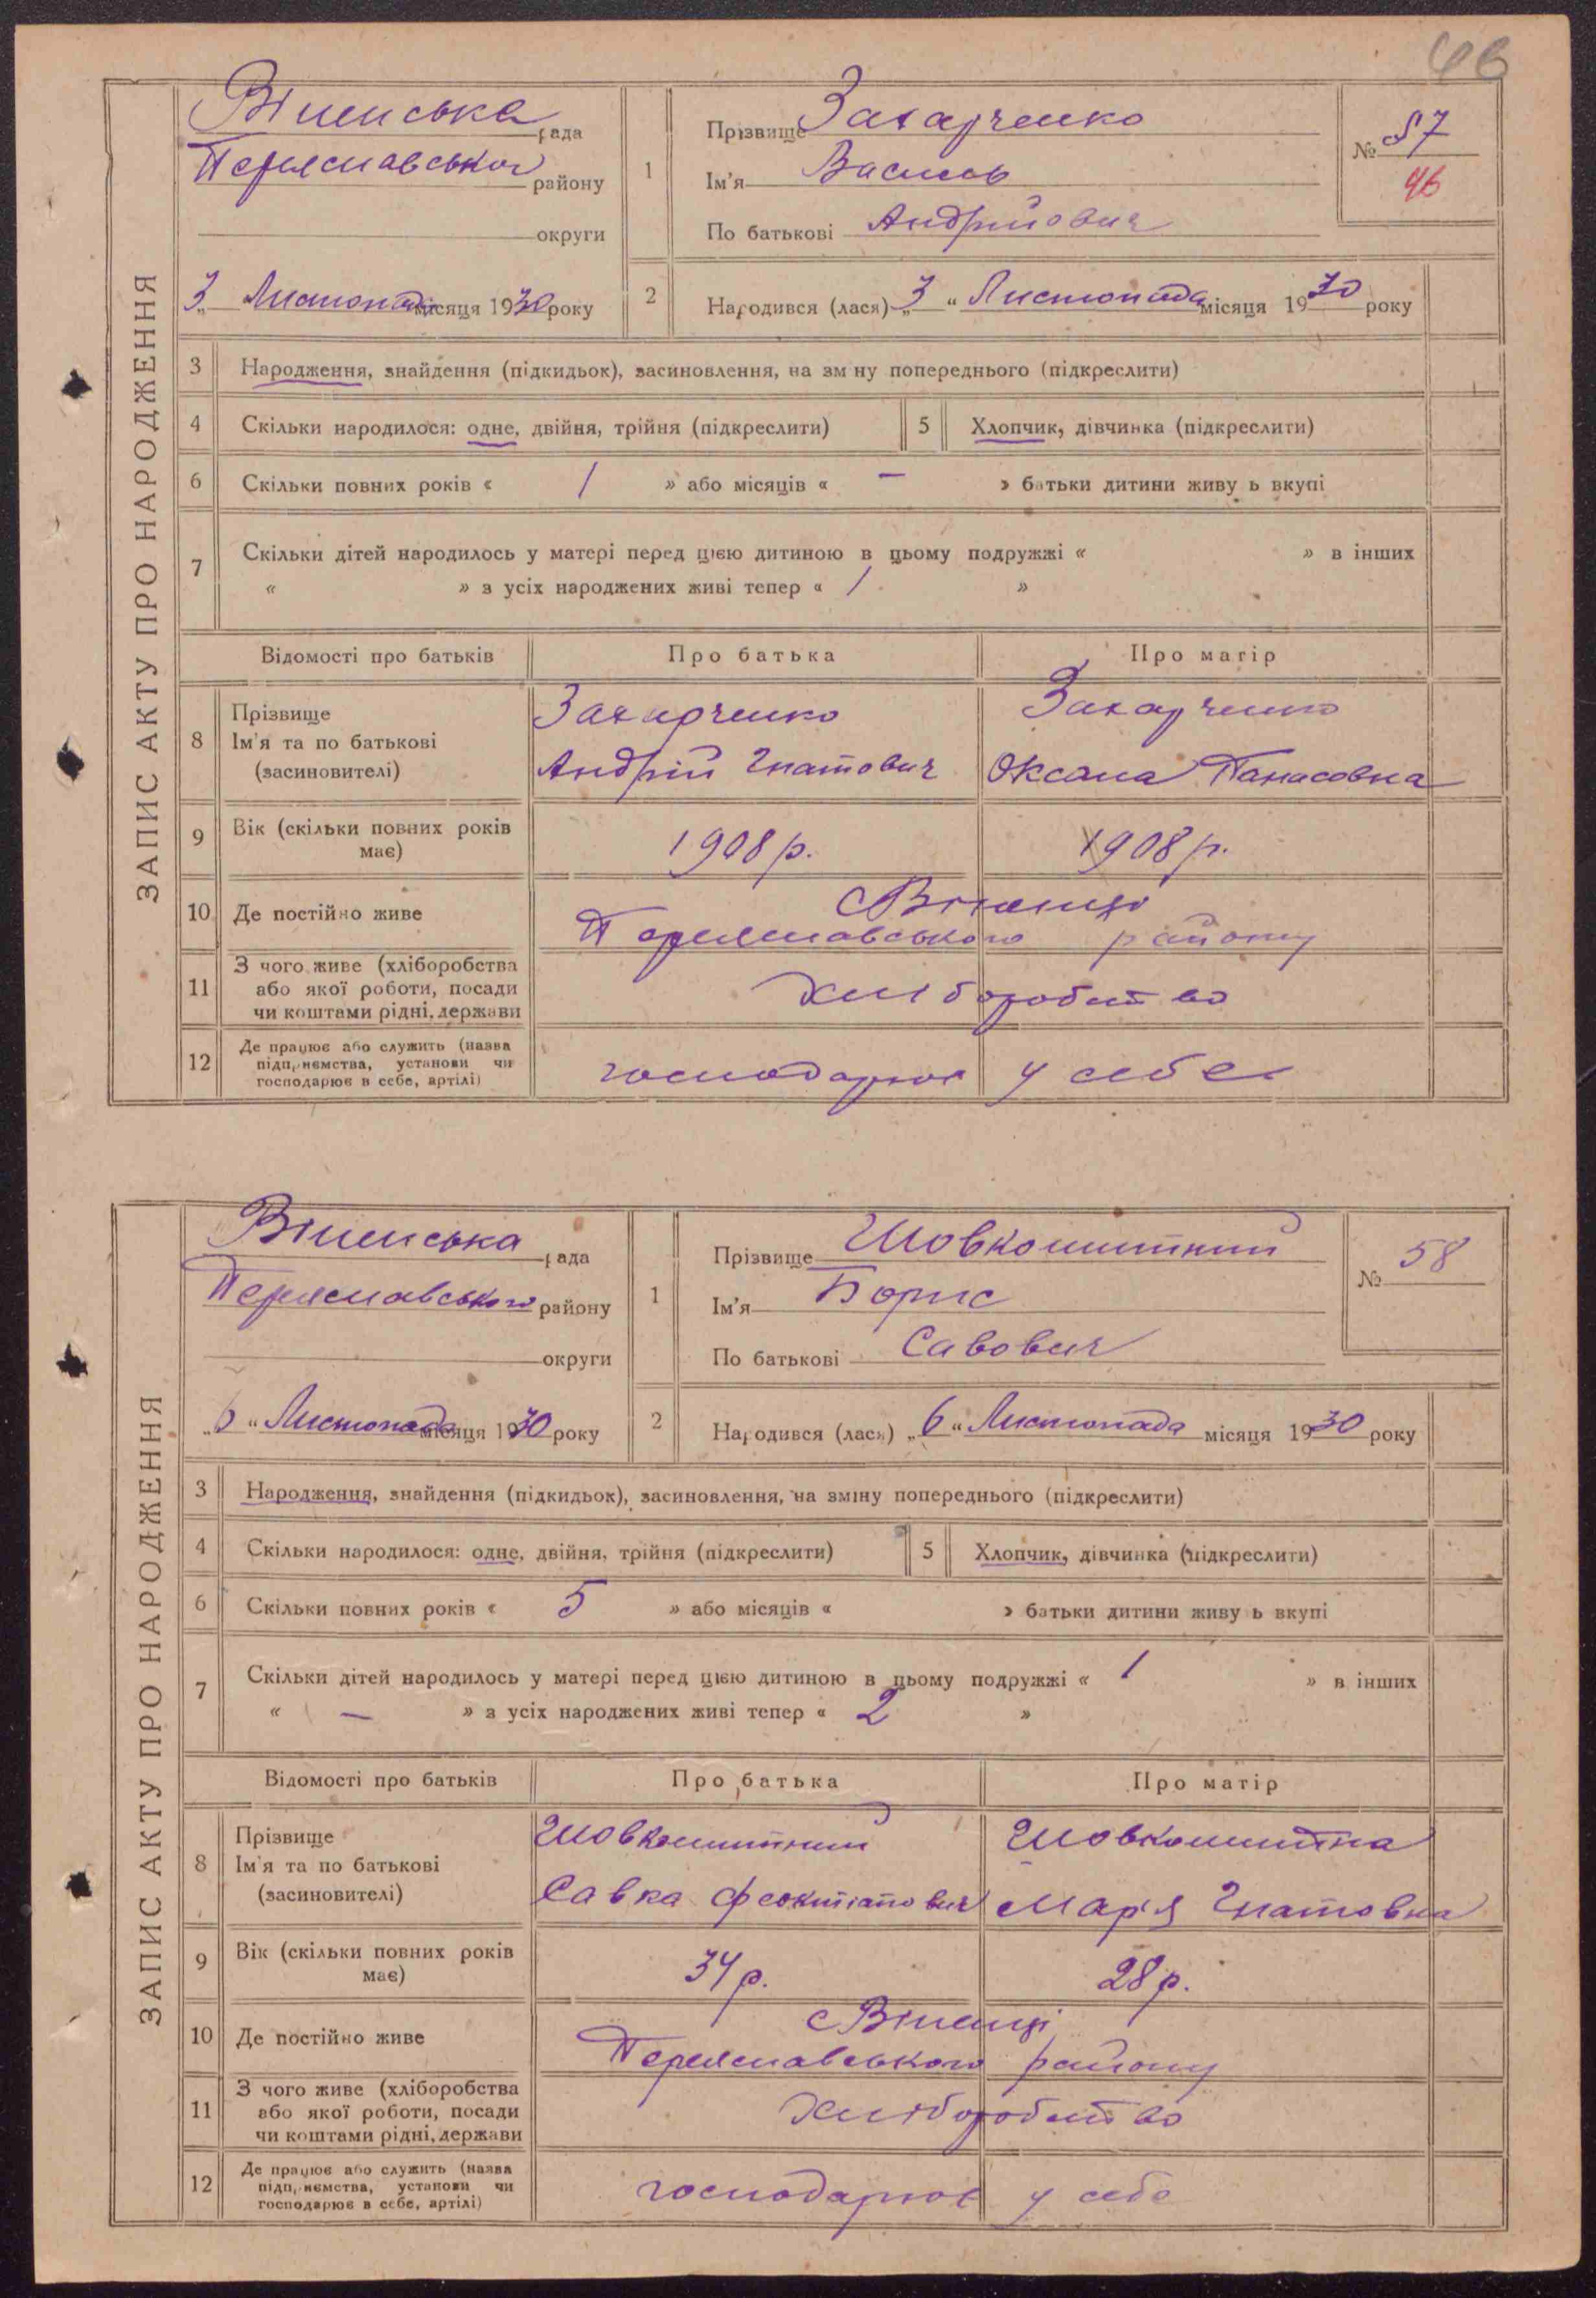 46
ЗАПИС АКТУ ПРО НАРОДЖЕННЯ
Віненська рада
Переяславського району
округи
3 „ Листопада місяця 1930 року
1
Прізвище Захарченко
Ім'я Василь
По батькові Андрійович
№ 57
46
2
Народився (лася) „ 3 “ Листопада місяця 1930 року
3 Народження, знайдення (підкидьок), засиновлення, на зм ну попереднього (підкреслити)
4 Скільки народилося: одне, двійня, трійня (підкреслити) 5 Хлопчик, дівчинка (підкреслити)
6 Скільки повних років « 1 » або місяців « — » батьки дитини живу ь вкупі
7 Скільки дітей народилось у матері перед цією дитиною в цьому подружжі « » в інших
« » з усіх народжених живі тепер « 1 »
Відомості про батьків Про батька Про матір
8 Прізвище
Ім'я та по батькові
(засиновителі)
Захарченко
Андрій Гнатович
Захарченко
Оксана Панасовна
9 Вік (скільки повних років
має)
1908 р. 1908 р.
10 Де постійно живе
с Віненці
Переяславського району
11 З чого живе (хліборобства
або якої роботи, посади
чи коштами рідні, держави
Хліборобство
12 Де працює або служить (назва
підпрнємства, установи чи
господарює в себе, артілі)
господарює у себе
ЗАПИС АКТУ ПРО НАРОДЖЕННЯ
Віненська рада
Переяславського району
округи
„ 6 “ Листопада місяця 1930 року
1
Прізвище Шовкошитний
Ім'я Борис
По батькові Савович
№ 58
2
Народився (лася) „ 6 “ Листопада місяця 1930 року
3 Народження, знайдення (підкидьок), засиновлення, на зміну попереднього (підкреслити)
4 Скільки народилося: одне, двійня, трійня (підкреслити) 5 Хлопчик, дівчинка (підкреслити)
6 Скільки повних років « 5 » або місяців « » батьки дитини живу ь вкупі
7 Скільки дітей народилось у матері перед цією дитиною в цьому подружжі « 1 » в інших
« — » з усіх народжених живі тепер « 2 »
Відомості про батьків Про батька Про матір
8 Прізвище
Ім'я та по батькові
(засиновителі)
Шовкошитний
Савка Феоктіатович
Шовкошитна
Мар'я Гнатовна
9 Вік (скільки повних років
має)
34 р. 28 р.
10 Де постійно живе
с Віненці
Переяславського району
11 З чого живе (хліборобства
або якої роботи, посади
чи коштами рідні, держави
Хліборобство
12 Де працює або служить (назва
підпрнємства, установи чи
господарює в себе, артілі)
господарює у себе